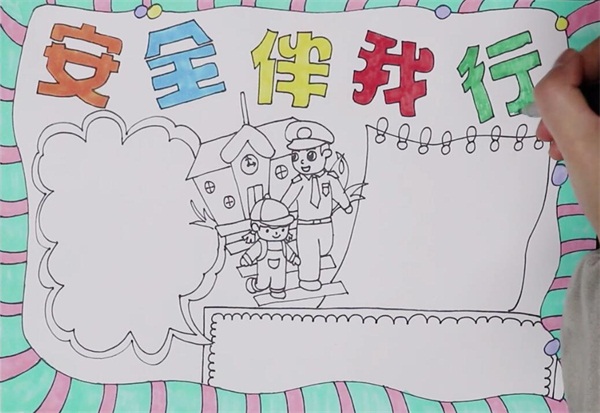 安全伴我行